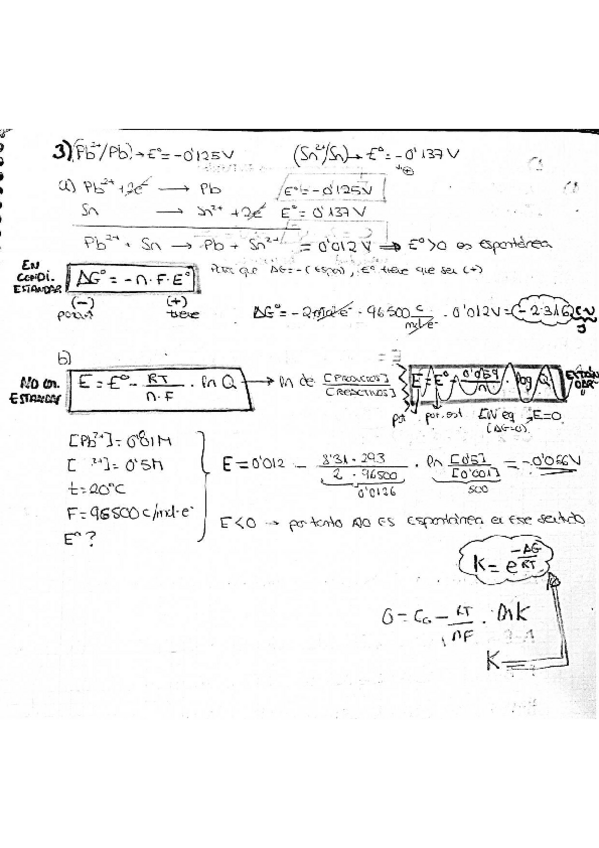 3) (Pb²⁺/Pb) → E° = -0'125V (Sn²⁺/Sn) → E° = -0'137V
a) Pb²⁺ + 2e⁻ → Pb E° = -0'125V
Sn → Sn²⁺ + 2e⁻ E° = 0'137V
Pb²⁺ + Sn → Pb + Sn²⁺ = 0'012V ⇒ E° > 0 es espontánea
EN CONDI. ESTANDAR
ΔG° = -n·F·E°
ΔG = - (espon), E° tiene que ser (+)
(-) (+)
tiene
ΔG° = -2 mol e⁻ · 96500 C/mol e⁻ · 0'012V = -2316 C·V
J
b)
NO en ESTANDAR
E = E° - RT/n·F · ln Q → ln de [PRODUCTOS]/[REACTIVOS]
E = E° - 0'059/n · log Q
EN eq, E=0
(ΔG=0)
[Pb²⁺] = 0'01M
[ ²⁺] = 0'5M
t = 20°C
F = 96500 C/mol·e⁻
E = 0'012 - 8'31·293/2·96500 · ln [0'5]/[0'001] = -0'056V
0'0126 500
E < 0 → por tanto NO ES espontánea en ese sentido
K = e^(-ΔG/RT)
RT/nF · ln K
K =